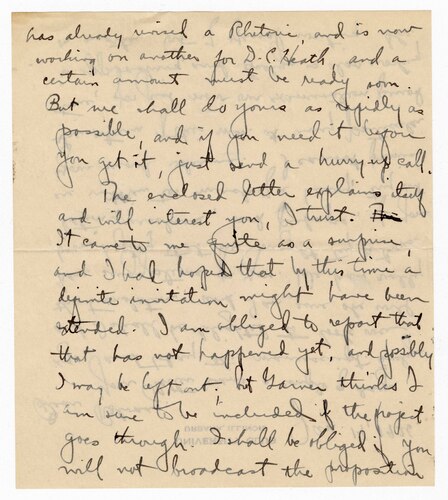 has already revised a Rhetoric, and is now
working on another for D.C. Heath, and a
certain amount must be ready soon.
But we shall do yours as rapidly as
possible, and if you need it before
you get it, just send a hurry up call.
The enclosed letter explains itself
and will interest you, I trust. The
It came to me quite as a surprise,
and I had hoped that by this time a
definite invitation might have been
extended. I am obliged to report that
that has not happened yet, and possibly
I may be left out, but Garner thinks I
am sure to be included if the project
goes through. I shall be obliged if you
will not broadcast the proposition